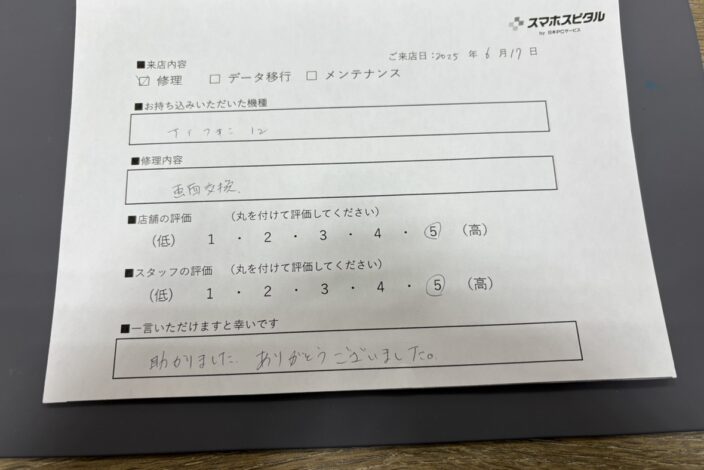 スマホスピタル
by 日本PCサービス
ご来店日:2025 年 6 月 17 日
■来店内容
☑ 修理 □ データ移行 □ メンテナンス
■お持ち込みいただいた機種
アイフォン 12
■修理内容
画面交換、
■店舗の評価 (丸を付けて評価してください)
(低) 1 ・ 2 ・ 3 ・ 4 ・ 5 (高)
■スタッフの評価 (丸を付けて評価してください)
(低) 1 ・ 2 ・ 3 ・ 4 ・ 5 (高)
■一言いただけますと幸いです
助かりました。ありがとうございました。